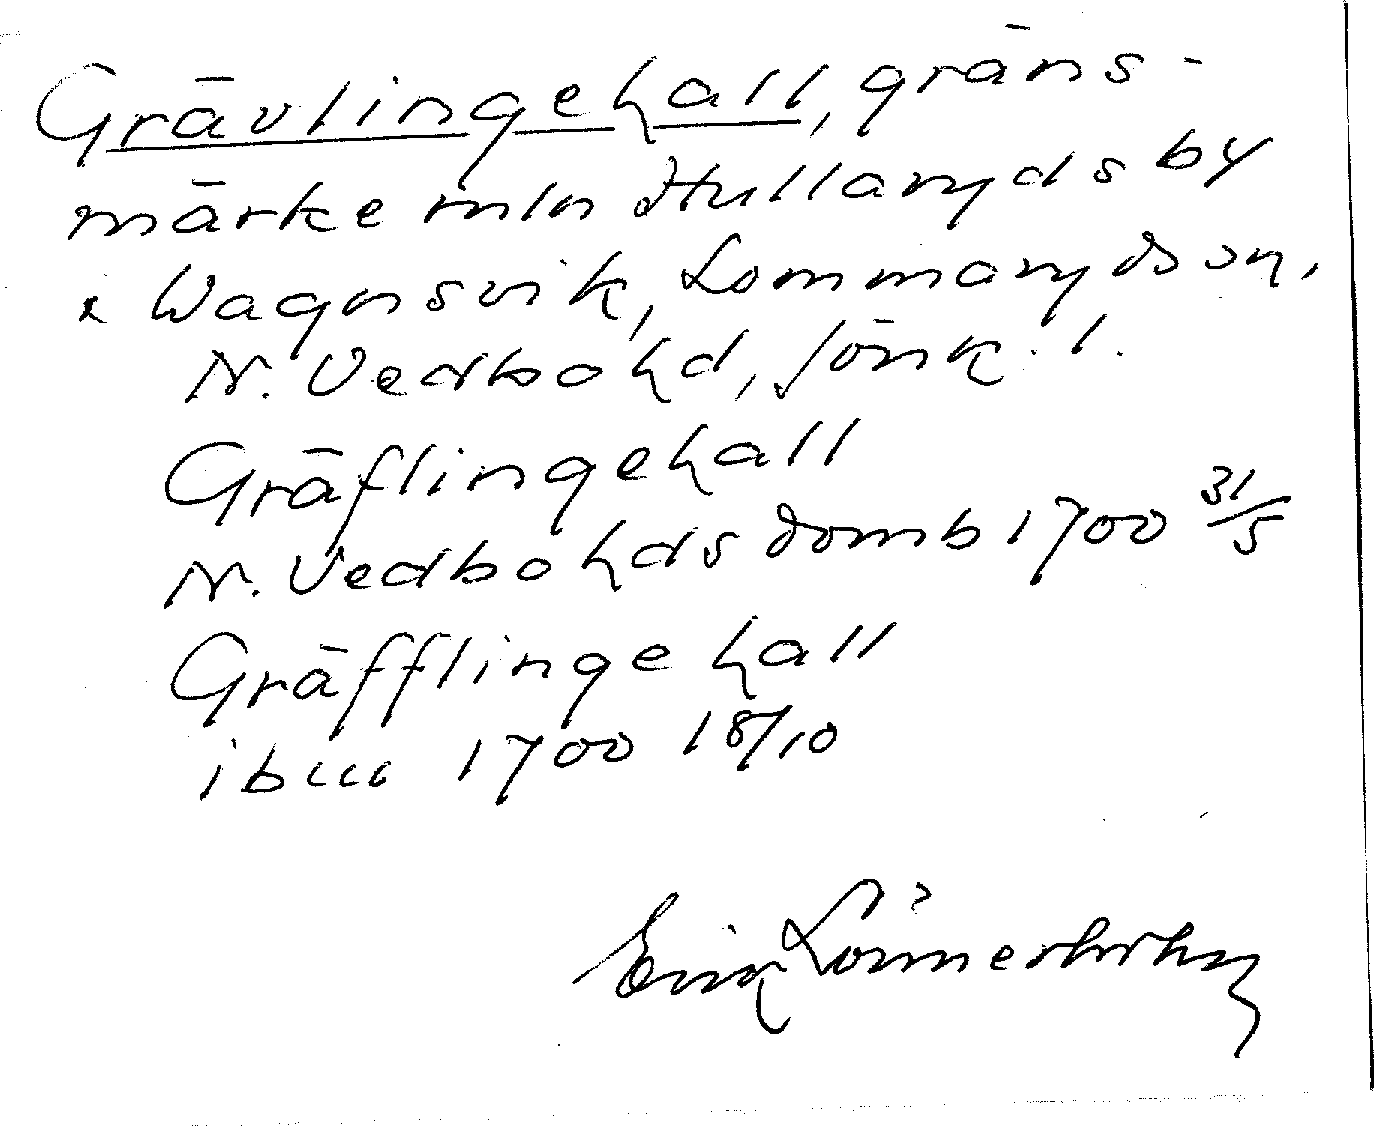 Grävlingehall, gräns-
märke mln Hullaryds by
x Wagnsvik, Lommaryds sn,
N. Vedbohd, Jönk. l.
Gräflingehall
N. Vedbohds domb 1700 31/5
Gräfflingehall
ibm 1700 18/10
Erik